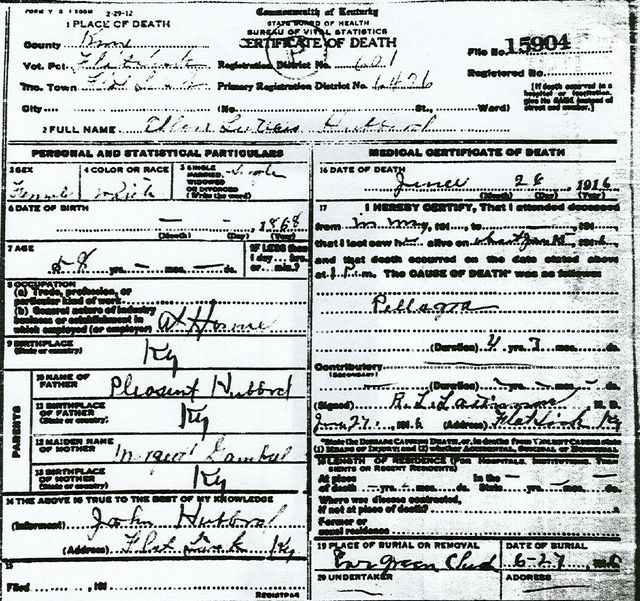 FORM V S 1 500M 2-29-12
Commonwealth of Kentucky
STATE BOARD OF HEALTH
BUREAU OF VITAL STATISTICS
CERTIFICATE OF DEATH
1 PLACE OF DEATH
County Knox
Vot. Pct. Flat Lick
Registration District No. 601
File No. 15904
Inc. Town
Primary Registration District No. 6426
Registered No.
City (No. St., Ward)
[If death occurred in a hospital or institution, give its NAME instead of street and number.]
2 FULL NAME Ellen Hubbard
PERSONAL AND STATISTICAL PARTICULARS
3 SEX Female
4 COLOR OR RACE White
5 SINGLE, MARRIED, WIDOWED OR DIVORCED (Write the word) Single
6 DATE OF BIRTH — — , 1868
(Month) (Day) (Year)
7 AGE 58 yrs. — mos. — ds.
IF LESS than 1 day, hrs. or min.?
8 OCCUPATION
(a) Trade, profession, or particular kind of work
(b) General nature of industry business or establishment in which employed (or employer) At Home
9 BIRTHPLACE (State or country) Ky
PARENTS
10 NAME OF FATHER Pleasent Hubbard
11 BIRTHPLACE OF FATHER (State or country) Ky
12 MAIDEN NAME OF MOTHER
13 BIRTHPLACE OF MOTHER (State or country) Ky
14 THE ABOVE IS TRUE TO THE BEST OF MY KNOWLEDGE
(Informant) John Hubbard
(Address) Flat Lick Ky
15
Filed , 191
REGISTRAR
MEDICAL CERTIFICATE OF DEATH
16 DATE OF DEATH
June 28, 1916
(Month) (Day) (Year)
17 I HEREBY CERTIFY, That I attended deceased
from in May, 191 , to — 191
that I last saw alive on 191
and that death occurred on the date stated above
at 1 P.m. The CAUSE OF DEATH* was as follows:
Pellagra
(Duration) yrs. mos. ds.
Contributory
(SECONDARY)
(Duration) — yrs. — mos. — ds.
(Signed) M. D.
191 6 (Address) Flat Lick Ky
*State the DISEASE CAUSING DEATH, or, in deaths from VIOLENT CAUSES state (1) MEANS OF INJURY; and (2) whether ACCIDENTAL, SUICIDAL or HOMICIDAL.
18 LENGTH OF RESIDENCE (FOR HOSPITALS, INSTITUTIONS, TRANSIENTS OR RECENT RESIDENTS)
At place of death yrs. mos. ds. In the State yrs. mos. ds.
Where was disease contracted,
if not at place of death?
Former or usual residence
19 PLACE OF BURIAL OR REMOVAL
DATE OF BURIAL
Evergreen
6-29 1916
20 UNDERTAKER
ADDRESS